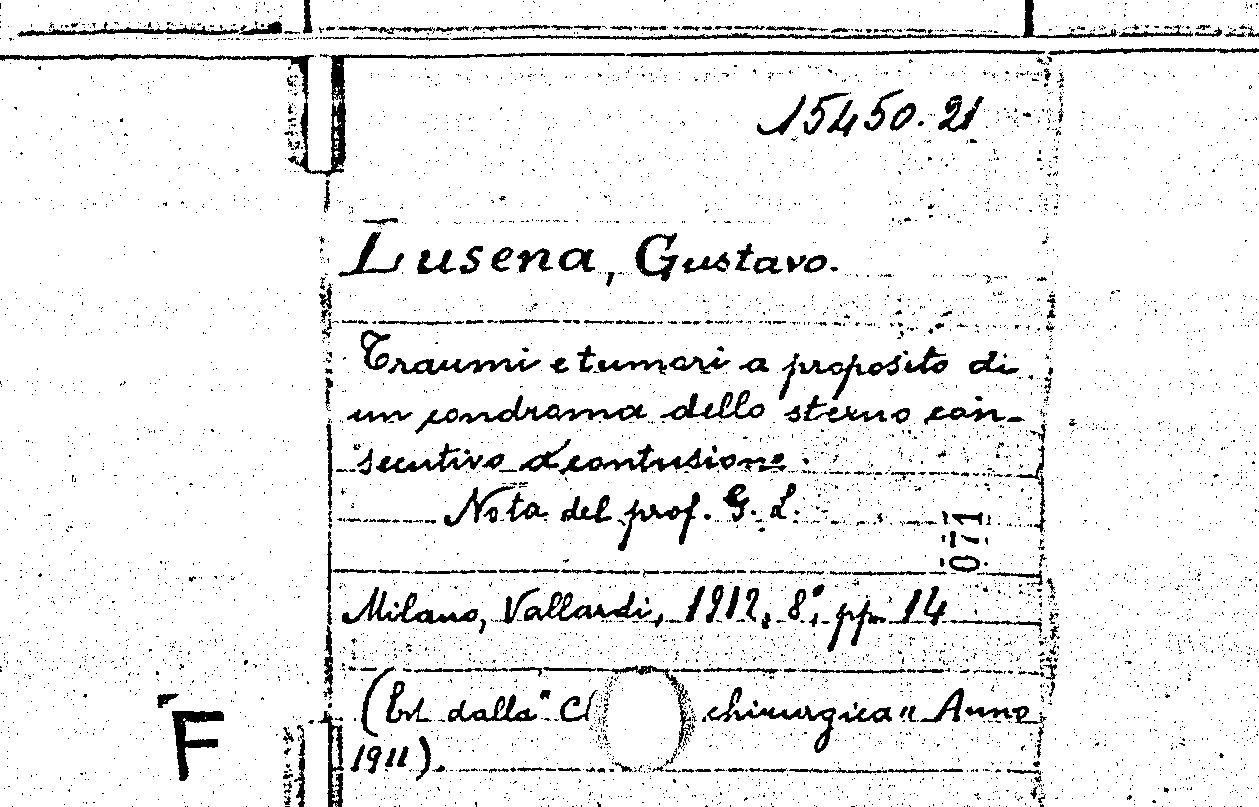 15450.21
Lusena, Gustavo.
Traumi e tumori a proposito di
un condroma dello sterno con-
secutivo a contusione.
Nota del prof. G. L.
071
Milano, Vallardi, 1912, 8°, pp. 14
(Est. dalla "Cl chirurgica" Anno
1911).
F